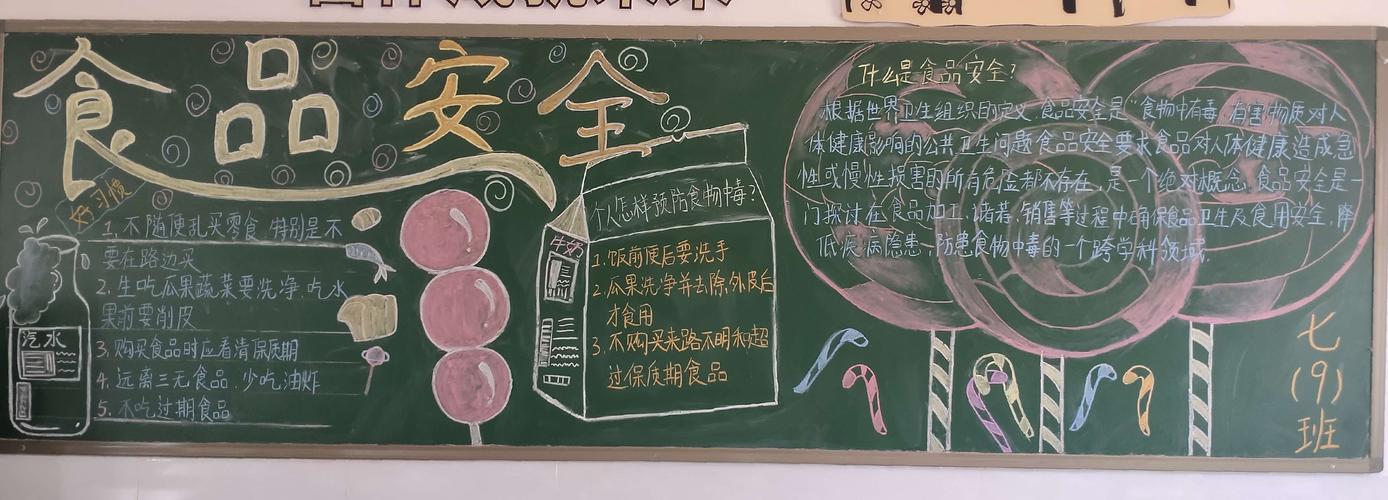 食品安全
好习惯
1. 不随便乱买零食,特别是不
要在路边买
2. 生吃瓜果蔬菜要洗净,吃水
果前要削皮
3. 购买食品时应看清保质期
4. 远离三无食品,少吃油炸
5. 不吃过期食品
汽水
个人怎样预防食物中毒?
牛奶
1. 饭前便后要洗手
2. 瓜果洗净并去除外皮后
才食用
3. 不购买来路不明和超
过保质期食品
什么是食品安全?
根据世界卫生组织的定义,食品安全是"食物中有毒、有害物质对人
体健康影响的公共卫生问题,食品安全要求食品对人体健康造成急
性或慢性损害的所有危险都不存在,是一个绝对概念,食品安全是一
门探讨在食品加工、诸若、销售等过程中确保食品卫生及食用安全,降
低疾病隐患,防患食物中毒的一个跨学科领域.
七
(9)
班